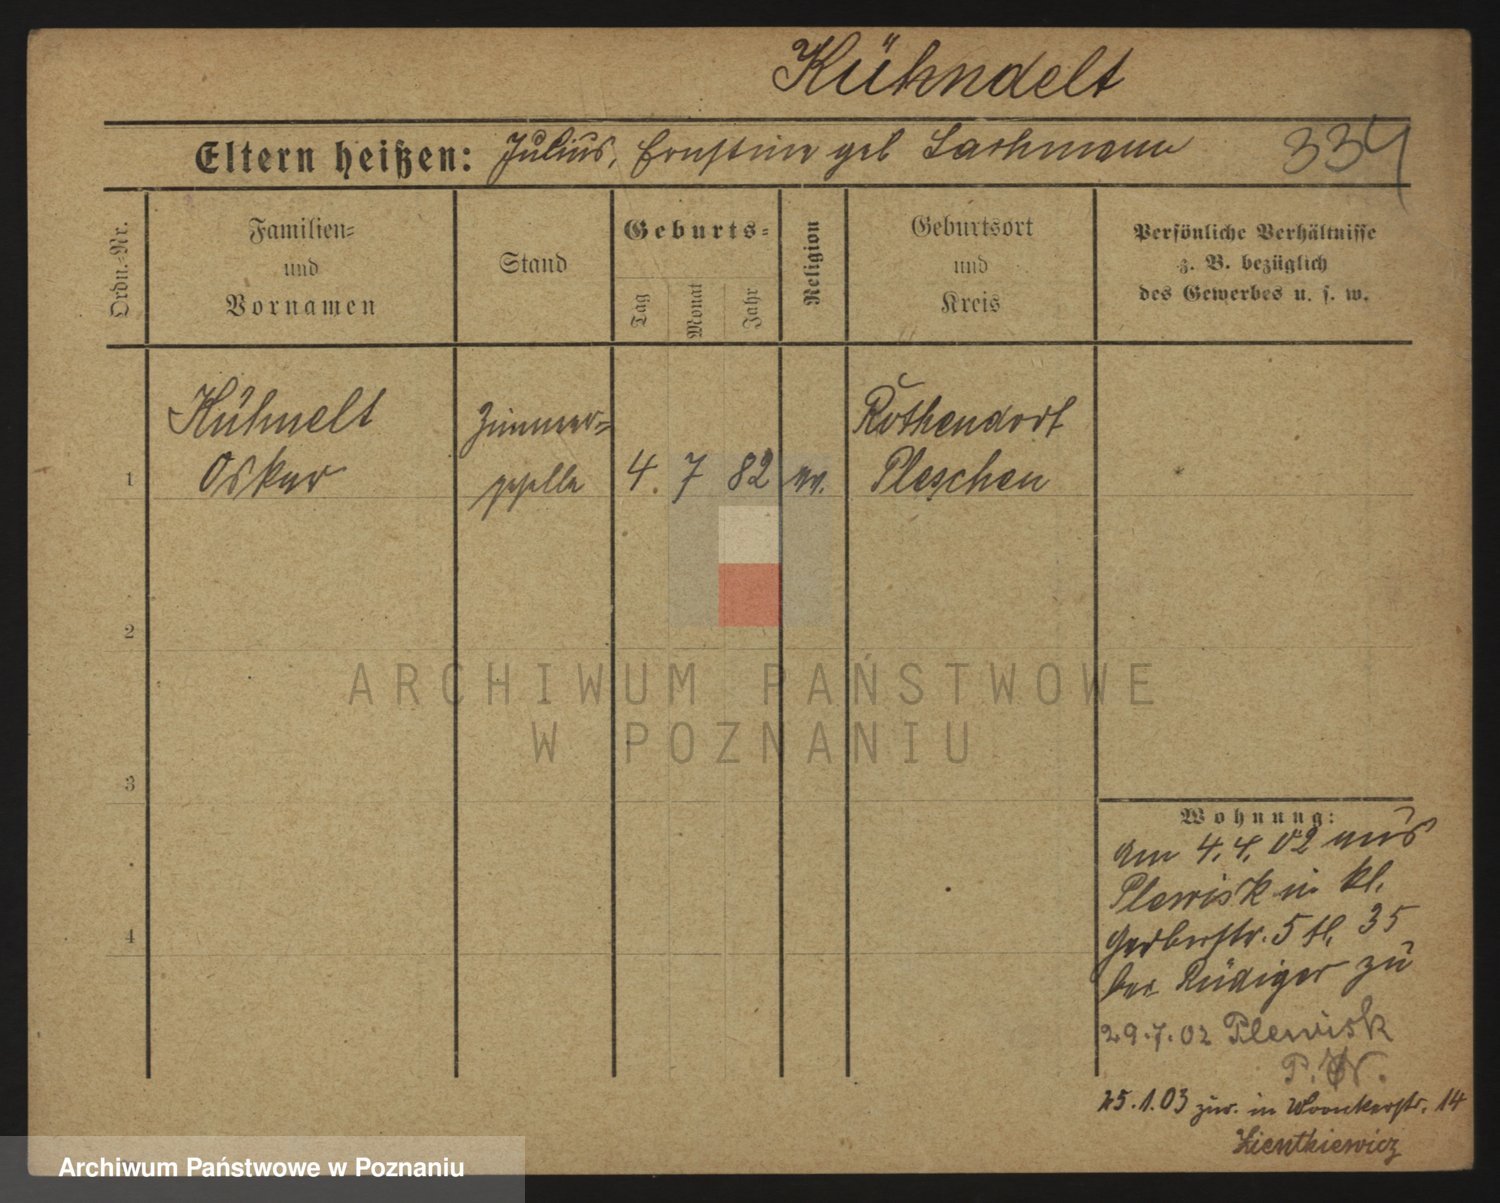 Kühndelt
Eltern heißen: Julius, Ernstine geb Lachmann 334
Ordn.-Nr.
Familien-
und
Vornamen
Stand
Geburts-
Tag
Monat
Jahr
Religion
Geburtsort
und
Kreis
Persönliche Verhältnisse
z. B. bezüglich
des Gewerbes u. s. w.
Kühnelt
Oskar
Zimmer-
geselle
1
4. 7 82 ev.
Rothendorf
Pleschen
2
3
4
Wohnung:
Am 4. 4. 02 aus
Plewisk in kl.
Gerberstr. 5 35
bei Rüdiger zu
29.7.02 Plewisk
25.1.03 zur. in Wronkerstr. 14
ARCHIWUM PAŃSTWOWE
W POZNANIU
Archiwum Państwowe w Poznaniu